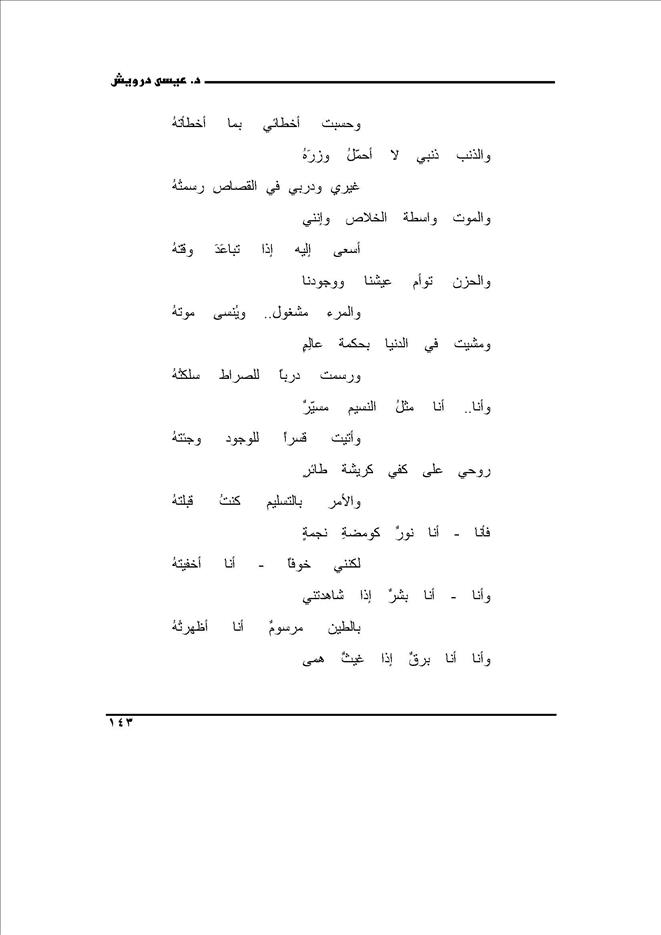 د. عيسى درويش
وحسبت أخطائي بما أخطأتهُ
والذنب ذنبي لا أحمّلُ وزرَهُ
غيري ودربي في القصاص رسمتُهُ
والموت واسطة الخلاص وإنني
أسعى إليه إذا تباعَدَ وقتهُ
والحزن توأم عيشنا ووجودنا
والمرء مشغول.. ويُنسى موتهُ
ومشيت في الدنيا بحكمة عالِمٍ
ورسمت درباً للصراط سلكتُهُ
وأنا.. أنا مثلُ النسيم مسيّرٌ
وأتيت قسراً للوجود وجئتهُ
روحي على كفي كريشة طائرٍ
والأمر بالتسليم كنتُ قبلتهُ
فأنا - أنا نورٌ كومضةِ نجمةٍ
لكنني خوفاً - أنا أخفيتهُ
وأنا - أنا بشرٌ إذا شاهدتني
بالطين مرسومٌ أنا أظهرتُهُ
وأنا أنا برقٌ إذا غيثٌ همى
١٤٣